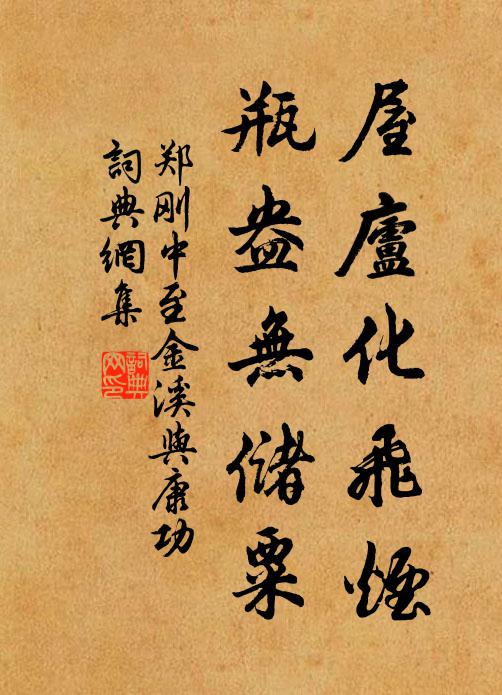 屋廬化飛煙
瓶盎無儲粟
郑刚中至金溪與康功
詞典網集
詞典网印